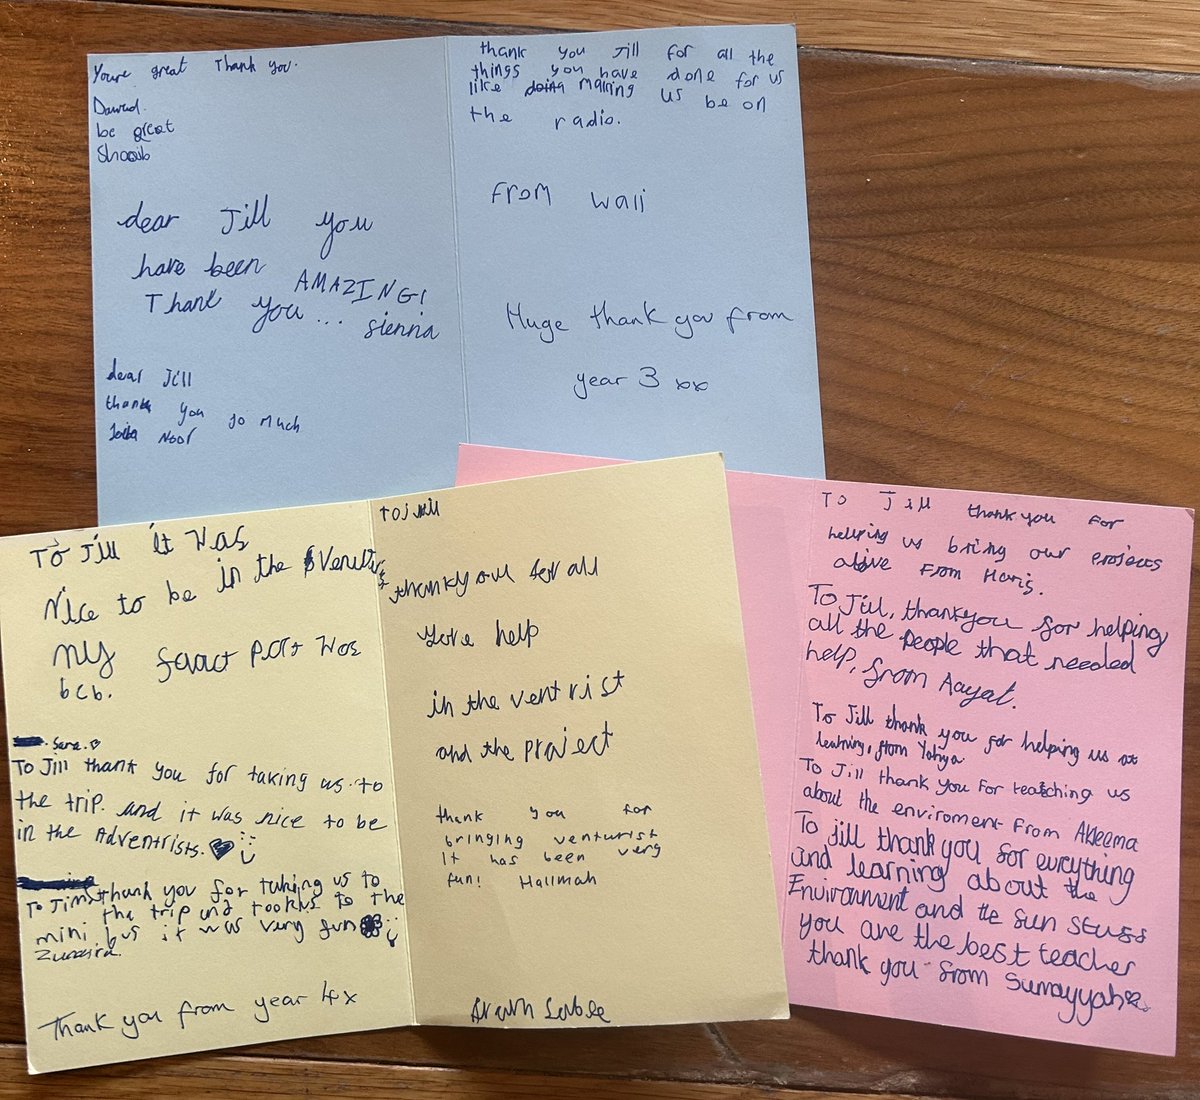 Youre great Thank you.
Dawud
be great
Shoaib
dear Jill you
have been AMAZING!
Thank you... sienna
dear Jill
thank you so much
Noor
thank you Jill for all the
things you have done for us
like making us be on
the radio.
From wali
Huge thank you from
year 3 xx
To Jill it was
Nice to be in the
my part was
bcb.
Sara.
To Jill thank you for taking us to
the trip. and it was nice to be
in the Adventrists.
thank you for taking us to
the trip and to the
mini bus it was very fun
Thank you from year 4 x
TO Jill
thankyou for all
help
in the ventrist
and the project
thank you for
bringing venturist
it has been very
fun! Halimah
To Jill thank you for
helping us bring our projects
alive From Haris.
To Jill, thankyou for helping
all the people that needed
help, from Aayat.
To Jill thank you for helping us at
learning, from Yahya
To Jill thank you for teaching us
about the enviroment from Akleema
To Jill thank you for evrything
and learning about the
Environment and the sun stuff
you are the best teacher
thank you from Sumayyah